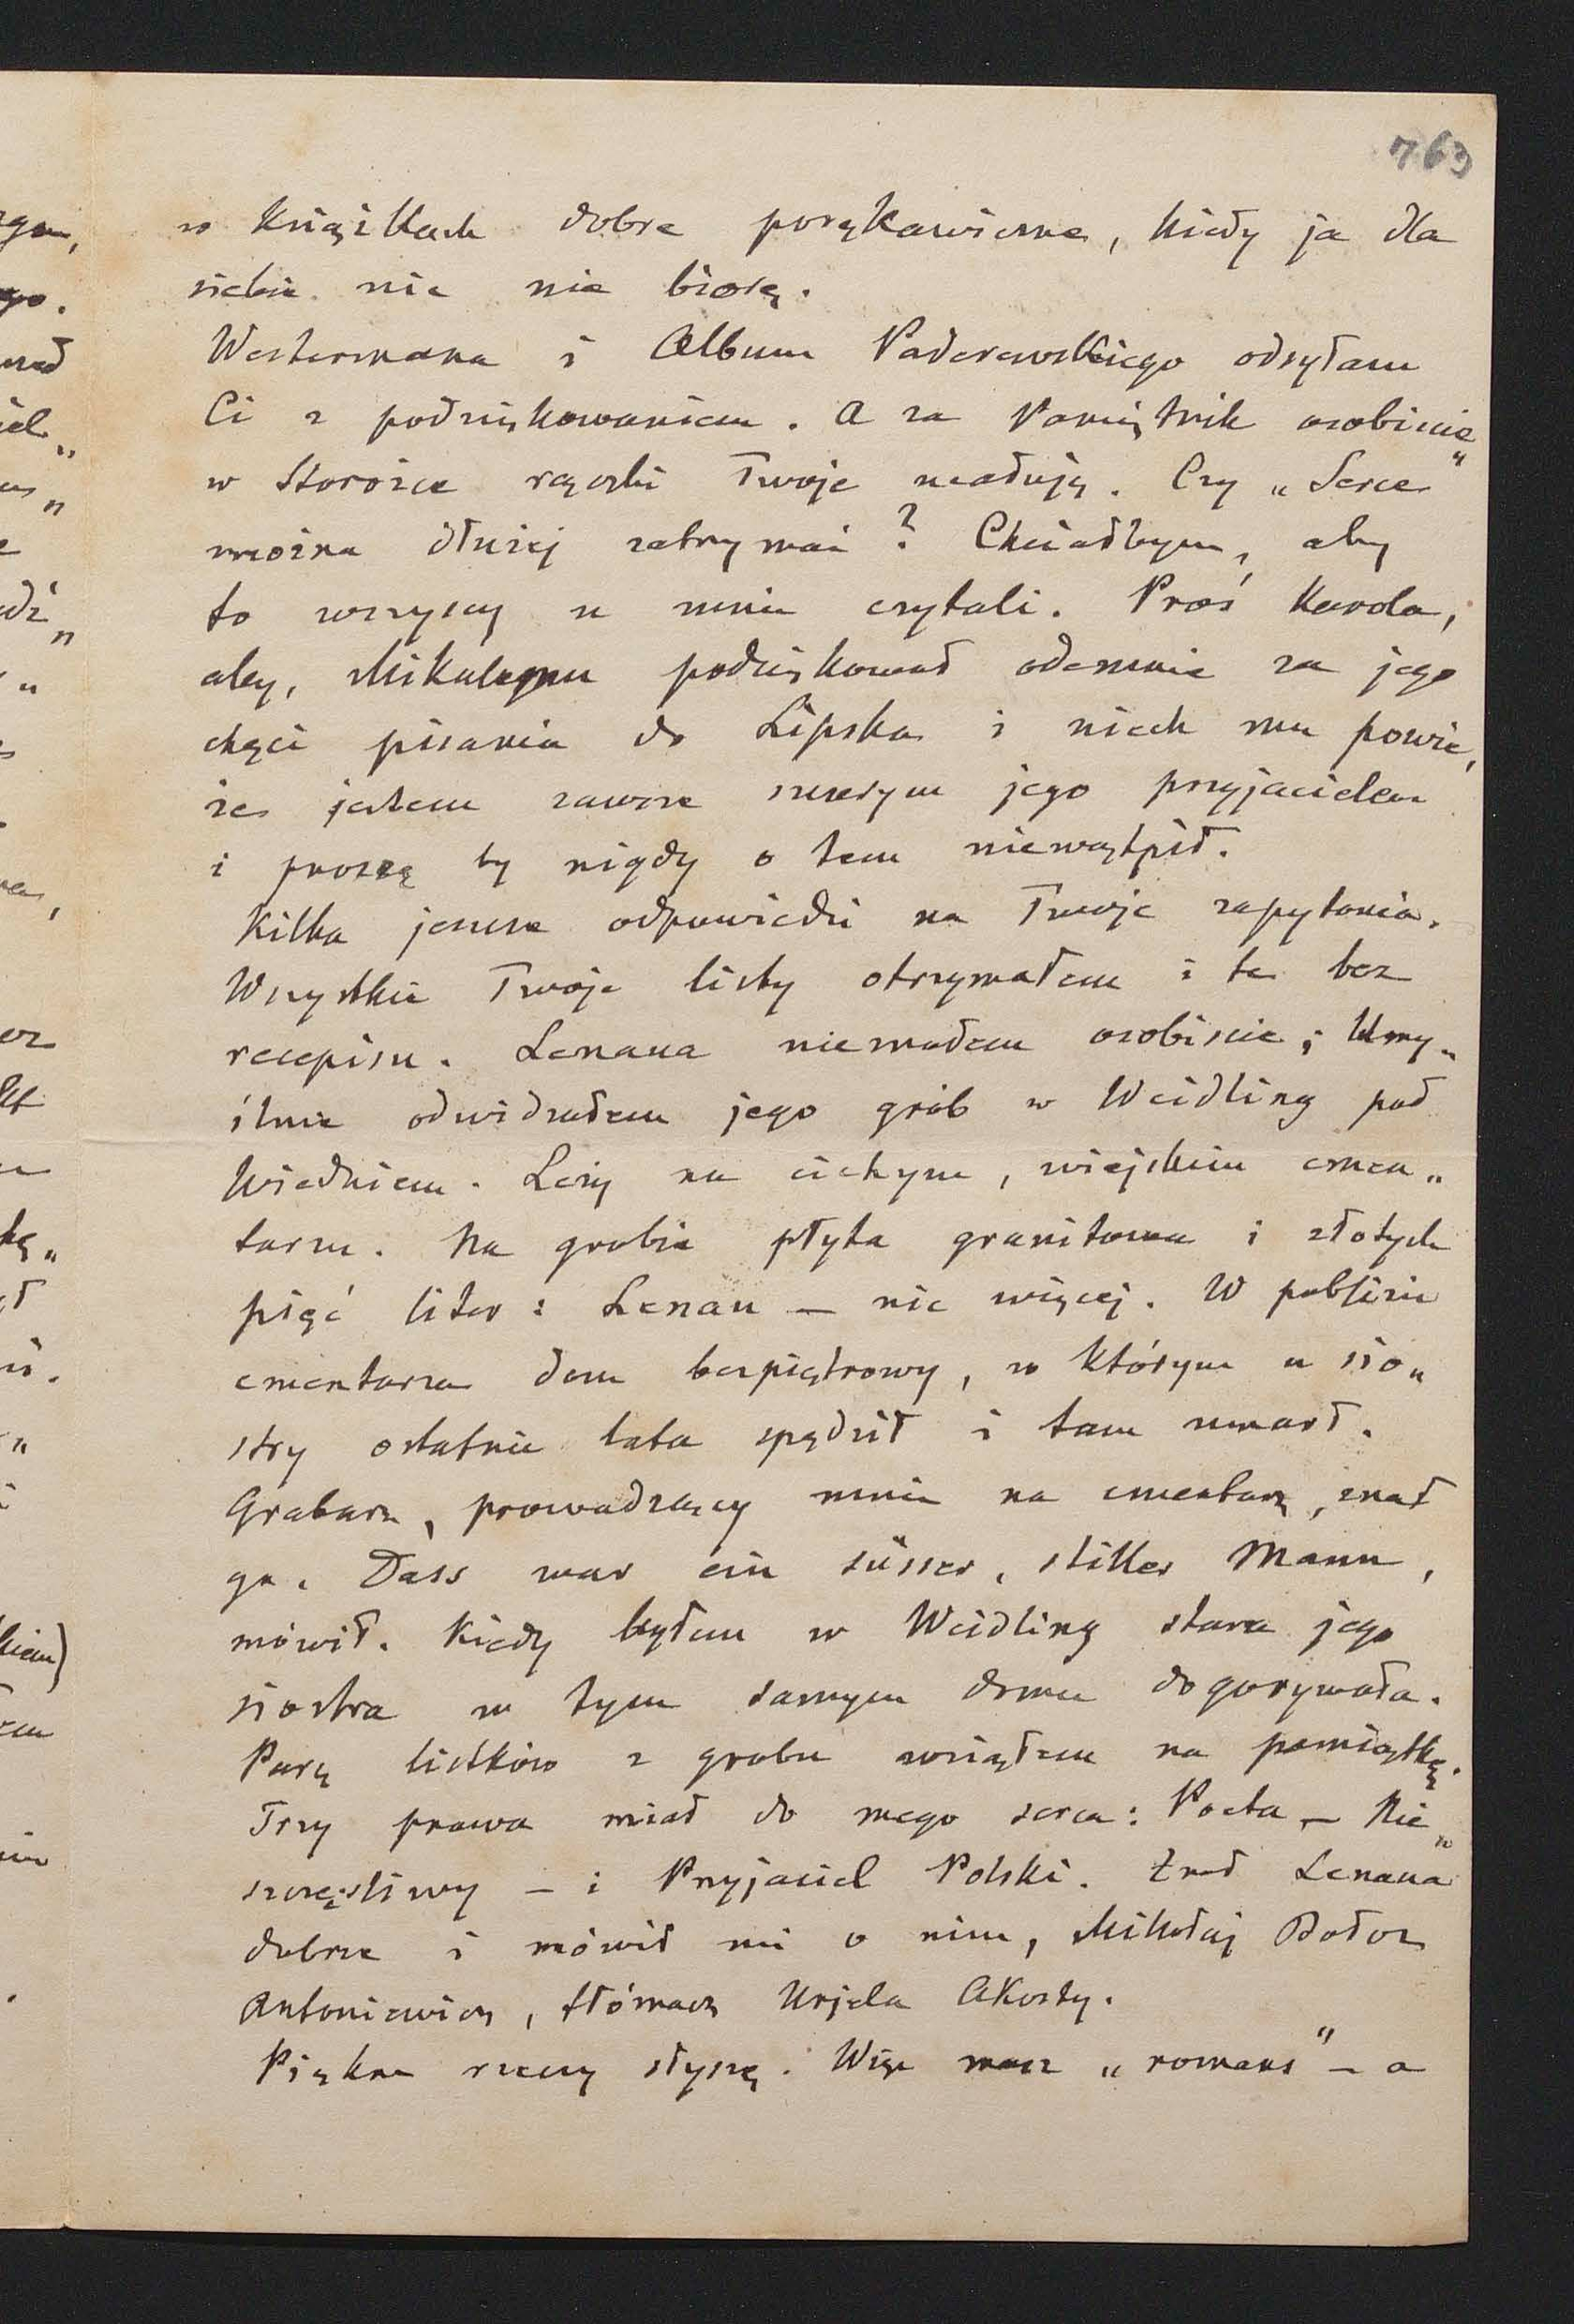 763
w książkach dobre porękawiczne, kiedy ja dla
siebie nic nie biorę.
Westermana i Album Paderewskiego odsyłam
Ci z podziękowaniem. A za Pamiętnik osobiście
w Storożce rączki Twoje ucałuję. Czy „Serce"
można dłużej zatrzymać? Chciałbym, aby
to wszyscy u mnie czytali. Proś Karola,
aby, Mikulemu podziękował odemnie za jego
chęci pisania do Lipska i niech mu powie,
że jestem zawsze szczerym jego przyjacielem
i proszę by nigdy o tem niewątpił.
Kilka jeszcze odpowiedzi na Twoje zapytania.
Wszystkie Twoje listy otrzymałem i te bez
recepisu. Lenaua nieznałem osobiscie; Umy„
ślnie odwidzałem jego grób w Weidling pod
Wiedniem. Leży na cichym, wiejskim cmen„
tarzu. Na grobie płyta granitowa i złotych
pięć liter: Lenau — nic więcej. W pobliżu
cmentarza dom bezpiętrowy, w którym u sio„
stry ostatnie lata spędził i tam umarł.
Grabarz, prowadzący mnie na cmentarz, znał
go. Dass war ein süsser, stiller Mann,
mówił. Kiedy byłem w Weidling stara jego
siostra w tym samym domu dogorywała.
Parę listków z grobu wziąłem na pamiątkę.
Trzy prawa miał do mego serca: Poeta — Nie„
szczęśliwy — i Przyjaciel Polski. Znał Lenaua
dobrze i mówił mi o nim, Mikołaj Bołoz
Antoniewicz, tłómacz Urjela Akosty.
Piękne rzeczy słyszę. Więc masz „romans" — a